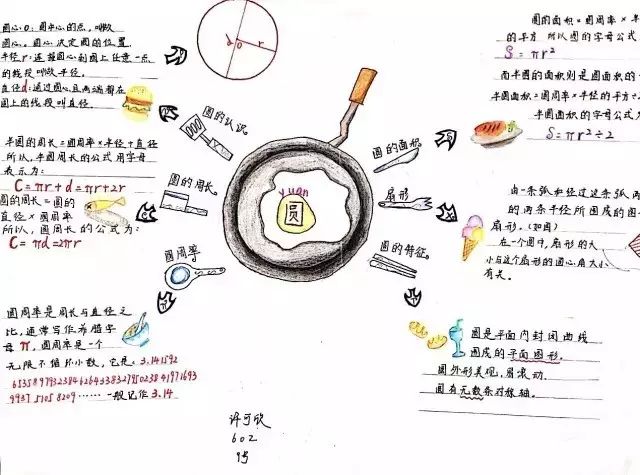 圆心O:圆中心的点,叫做
圆心。圆心决定圆的位置.
半径r:连接圆心到圆上任意一点
的线段叫做半径.
直径d:通过圆心且两端都在
圆上的线段叫直径.
d O r
圆的认识。
半圆的周长=圆周率×半径+直径
所以,半圆周长的公式用字母
表示为:
C=πr+d=πr+2r
圆的周长=圆的
直径×圆周率
所以,圆周长的公式为:
C=πd=2πr
圆的周长。
圆周率。
圆周率是周长与直径之
比,通常写作希腊字
母π,圆周率是一个
无限不循环小数,它是:3.141592
65358979323846264338327950238841971693
99375105 8209……一般记作3.14
yuán
圆
圆的面积=圆周率×半
的平方 所以圆的字母公式
S=πr²
而半圆的面积则是圆面积的一
半圆面积=圆周率×半径的平方÷2
半圆面积的字母公式为
S=πr²÷2
圆的面积。
扇形。
由一条弧和经过这条弧两
的两条半径所围成的图
扇形.(如图)
在一个圆中,扇形的大
小与这个扇形的圆心角大小
有关。
圆的特征。
圆是平面内封闭曲线
围成的平面图形.
圆外形美观,易滚动.
圆有无数条对称轴.
许可欣
602